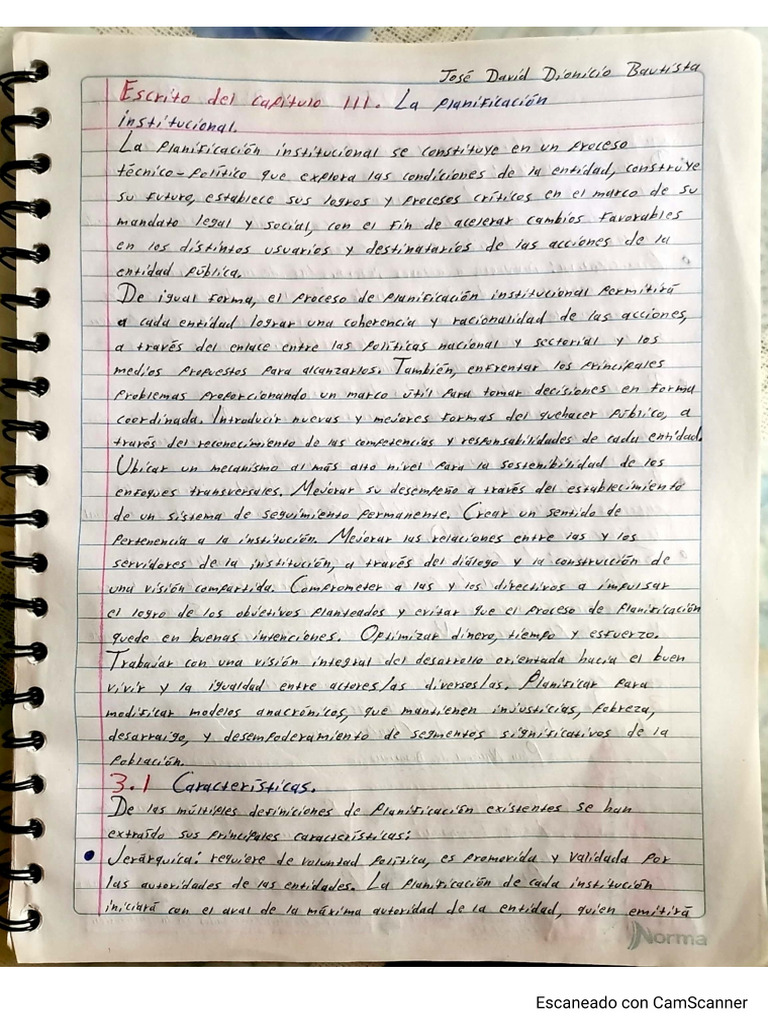 José David Dionicio Bautista
Escrito del capítulo III. La planificación
institucional.
La planificación institucional se constituye en un proceso
técnico-político que explora las condiciones de la entidad, construye
su futuro, establece sus logros y procesos críticos en el marco de su
mandato legal y social, con el fin de acelerar cambios favorables
en los distintos usuarios y destinatarios de las acciones de la
entidad pública.
De igual forma, el proceso de planificación institucional permitirá
a cada entidad lograr una coherencia y racionalidad de las acciones,
a través del enlace entre las políticas nacional y sectorial y los
medios propuestos para alcanzarlos. También, enfrentar los principales
problemas proporcionando un marco útil para tomar decisiones en forma
coordinada. Introducir nuevas y mejores formas del quehacer público, a
través del reconocimiento de las competencias y responsabilidades de cada entidad.
Ubicar un mecanismo al más alto nivel para la sostenibilidad de los
enfoques transversales. Mejorar su desempeño a través del establecimiento
de un sistema de seguimiento permanente. Crear un sentido de
pertenencia a la institución. Mejorar las relaciones entre las y los
servidores de la institución, a través del diálogo y la construcción de
una visión compartida. Comprometer a las y los directivos a impulsar
el logro de los objetivos planteados y evitar que el proceso de planificación
quede en buenas intenciones. Optimizar dinero, tiempo y esfuerzo.
Trabajar con una visión integral del desarrollo orientada hacia el buen
vivir y la igualdad entre actores/as diversos/as. Planificar para
modificar modelos anacrónicos, que mantienen injusticias, pobreza,
desarraigo, y desempoderamiento de segmentos significativos de la
población.
3.1 Características.
De las múltiples definiciones de planificación existentes se han
extraído sus principales características:
• Jerárquica: requiere de voluntad política, es promovida y validada por
las autoridades de las entidades. La planificación de cada institución
iniciará con el aval de la máxima autoridad de la entidad, quien emitirá
Norma
Escaneado con CamScanner